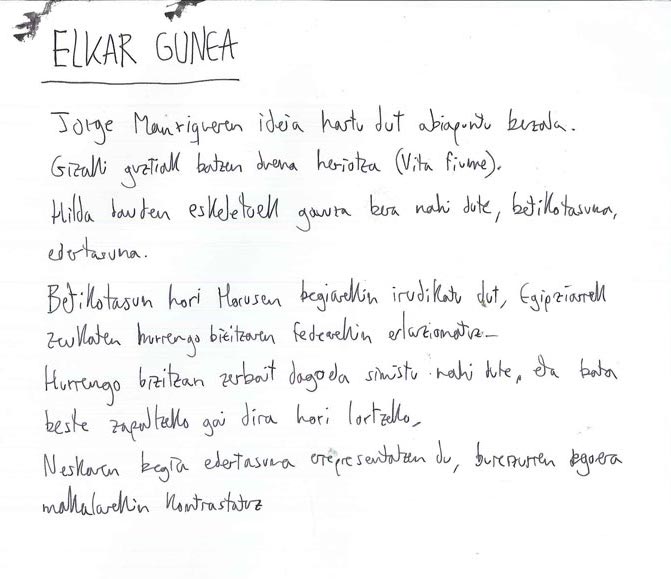 ELKAR GUNEA
Jorge Manriqueren ideia hartu dut abiapuntu bezala.
Gizaki guztiak batzen duena heriotza (Vita fiume).
Hilda dauden eskeletoek gauza bera nahi dute, betikotasuna,
edertasuna.
Betikotasun hori Horusen begiarekin irudikatu dut, Egipziarrek
zeukaten hurrengo bizitzaren federekin erlazionatuz.
Hurrengo bizitzan zerbait dagoela sinistu nahi dute, eta bata
beste zapaltzeko gai dira hori lortzeko.
Neskaren begia edertasuna errepresentatzen du, burezurren egoera
makalarekin kontrastatuz